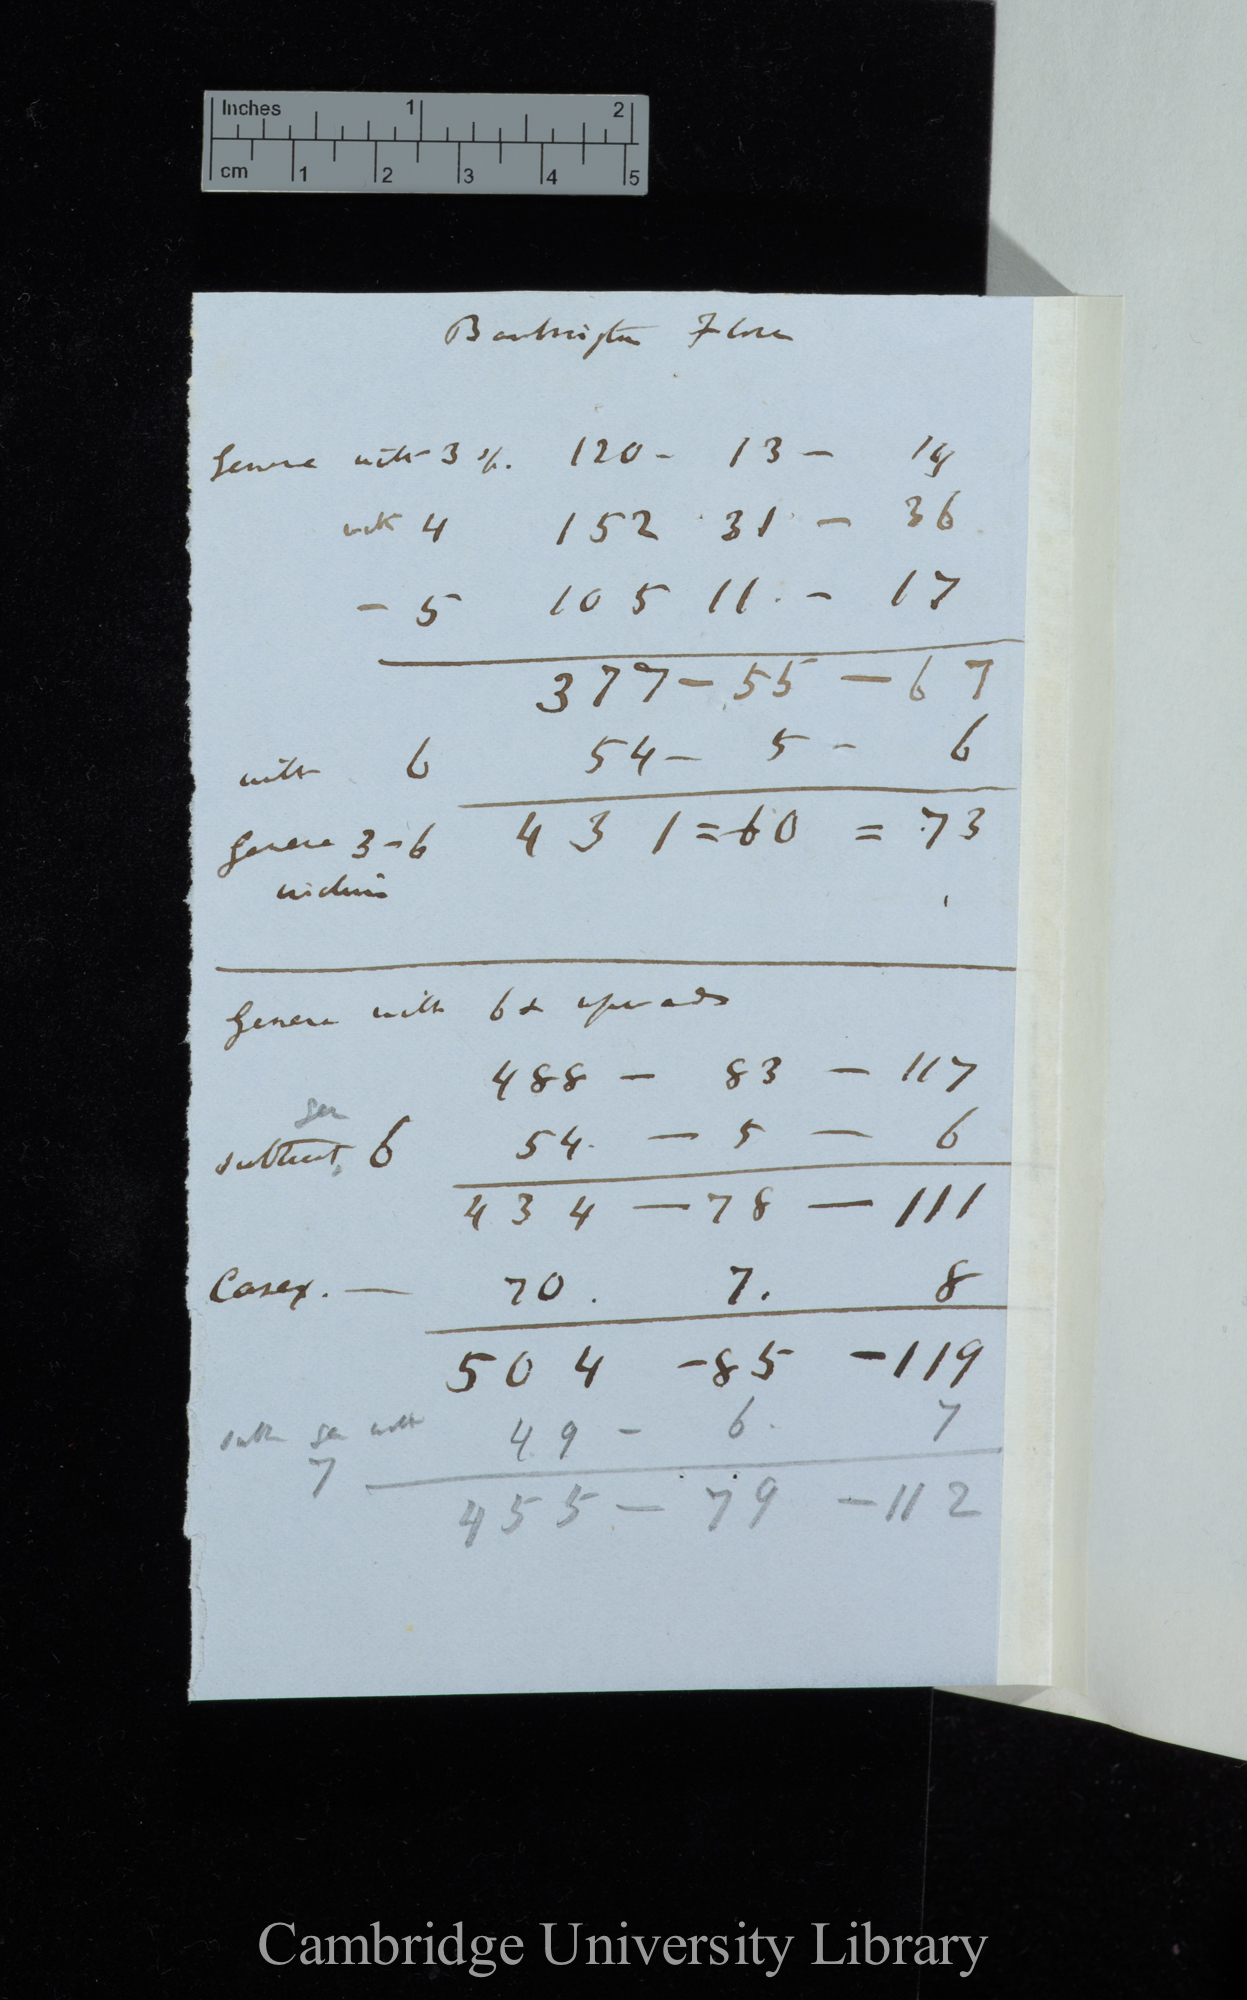 Inches 1 2
cm 1 2 3 4 5
Flora
Genera with 3 sp. 120 - 13 - 14
with 4 152 31 - 36
- 5 105 11 - 17
377 - 55 - 67
with 6 54 - 5 - 6
Genera 3-6 431 = 60 = 73
inclusive
Genera with 6 & upwards
488 - 83 - 117
gen
subtract, 6 54 - 5 - 6
434 - 78 - 111
Carex. — 70. 7. 8
504 - 85 - 119
subt gen with 49 - 6. 7
7
455 - 79 - 112
Cambridge University Library